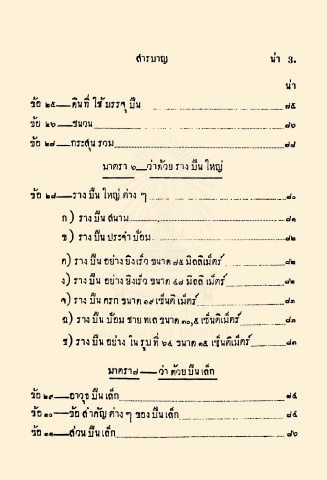 สารบาญ น่า 3.
น่า
ข้อ ๒๕—ดินที่ ใช้ บรรจุ ปืน ๗๕
ข้อ ๒๖—ชนวน ๗๖
ข้อ ๒๗—กระสุน รวม ๗๗
มาตรา ๖—ว่าด้วย ราง ปืน ใหญ่
ข้อ ๒๘—ราง ปืน ใหญ่ ต่าง ๆ ๘๐
ก) ราง ปืน สนาม ๘๑
ข) ราง ปืน ประจำ ป้อม ๘๒
ค) ราง ปืน อย่าง ยิงเร็ว ขนาด ๗๕ มิลลิเม็ตร์ ๘๒
ง) ราง ปืน อย่าง ยิงเร็ว ขนาด ๔๗ มิลลิ เม็ตร์ ๘๒
จ) ราง ปืน ครก ขนาด ๑๙ เซ็นติ เม็ตร์ ๘๓
ฉ) ราง ปืน ป้อม ชาย ทเล ขนาด ๓๐,๕ เซ็นติเม็ตร์ ๘๓
ช) ราง ปืน อย่าง ใน รูป ที่ ๖๔ ขนาด ๑๕ เซ็นติเม็ตร์ ๘๓
มาตรา ๗—ว่า ด้วย ปืน เล็ก
ข้อ ๒๙—อาวุธ ปืน เล็ก ๘๔
ข้อ ๓๐—ข้อ สำคัญ ต่าง ๆ ของ ปืน เล็ก ๘๔
ข้อ ๓๑—ส่วน ปืน เล็ก ๘๖